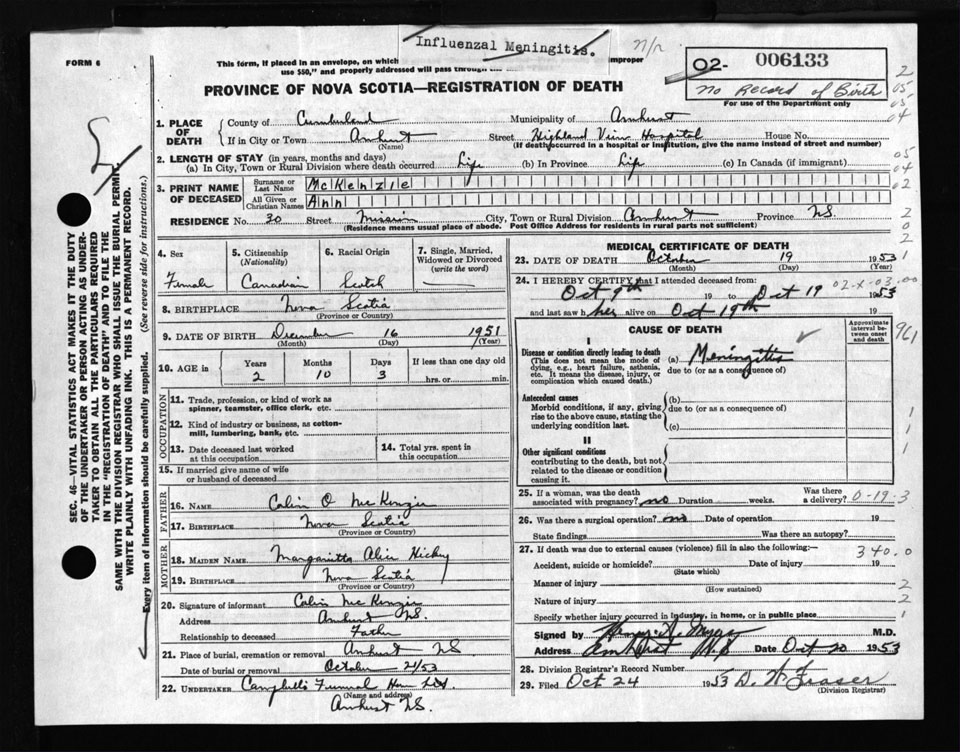 Influenzal Meningitis.
n/r
FORM 6
This form, if placed in an envelope, on which improper
use $50," and properly addressed will pass through the
02- 006133
No Record of Birth
For use of the Department only
PROVINCE OF NOVA SCOTIA—REGISTRATION OF DEATH
1. PLACE OF DEATH County of Cumberland Municipality of Amherst
If in City or Town Amherst Street Highland View Hospital House No.
(Name) (If death occurred in a hospital or institution, give the name instead of street and number)
2. LENGTH OF STAY (in years, months and days)
(a) In City, Town or Rural Division where death occurred Life (b) In Province Life (c) In Canada (if immigrant)
3. PRINT NAME OF DECEASED Surname or Last Name McKenzie
All Given or Christian Names Ann
RESIDENCE No. 30 Street City, Town or Rural Division Amherst Province N.S.
(Residence means usual place of abode. Post Office Address for residents in rural parts not sufficient)
4. Sex Female
5. Citizenship (Nationality) Canadian
6. Racial Origin Scotch
7. Single, Married, Widowed or Divorced (write the word)
8. BIRTHPLACE Nova Scotia
(Province or Country)
9. DATE OF BIRTH December 16 1951
(Month) (Day) (Year)
10. AGE in Years Months Days If less than one day old
2 10 3 hrs. or min.
OCCUPATION
11. Trade, profession, or kind of work as spinner, teamster, office clerk, etc.
12. Kind of industry or business, as cotton-mill, lumbering, bank, etc.
13. Date deceased last worked at this occupation
14. Total yrs. spent in this occupation
15. If married give name of wife or husband of deceased
FATHER
16. NAME Colin O McKenzie
17. BIRTHPLACE Nova Scotia
(Province or Country)
MOTHER
18. MAIDEN NAME Alice Hickey
19. BIRTHPLACE Nova Scotia
(Province or Country)
20. Signature of informant Colin McKenzie
Address Amherst N.S.
Relationship to deceased Father
21. Place of burial, cremation or removal Amherst N.S.
Date of burial or removal October 21/53
22. UNDERTAKER Campbell's Funeral Home Ltd.
(Name and address)
Amherst N.S.
MEDICAL CERTIFICATE OF DEATH
23. DATE OF DEATH October 19 1953
(Month) (Day) (Year)
24. I HEREBY CERTIFY that I attended deceased from:
Oct 9th 19 to Oct 19 1953
and last saw her alive on Oct 19th 19
02-X-03.00
CAUSE OF DEATH
Approximate interval between onset and death
961
I
Disease or condition directly leading to death (a) Meningitis
(This does not mean the mode of dying, e.g., heart failure, asthenia, etc. It means the disease, injury, or complication which caused death.)
due to (or as a consequence of)
Antecedent causes (b)
Morbid conditions, if any, giving rise to the above cause, stating the underlying condition last.
due to (or as a consequence of)
(c)
II
Other significant conditions
contributing to the death, but not related to the disease or condition causing it.
25. If a woman, was the death associated with pregnancy? no Duration weeks. Was there a delivery?
0-19-3
26. Was there a surgical operation? no Date of operation 19
State findings Was there an autopsy?
27. If death was due to external causes (violence) fill in also the following:—
340.0
Accident, suicide or homicide? Date of injury 19
(State which)
Manner of injury
(How sustained)
Nature of injury
Specify whether injury occurred in industry, in home, or in public place
Signed by M.D.
Address Amherst N.S. Date Oct 20 1953
28. Division Registrar's Record Number
29. Filed Oct 24 1953 Fraser
(Division Registrar)
SEC. 46—VITAL STATISTICS ACT MAKES IT THE DUTY
OF THE UNDERTAKER OR PERSON ACTING AS UNDER-
TAKER TO OBTAIN ALL THE PARTICULARS REQUIRED
IN THE "REGISTRATION OF DEATH" AND TO FILE THE
SAME WITH THE DIVISION REGISTRAR WHO SHALL ISSUE THE BURIAL PERMIT.
WRITE PLAINLY WITH UNFADING INK. THIS IS A PERMANENT RECORD.
Every item of information should be carefully supplied. (See reverse side for instructions.)